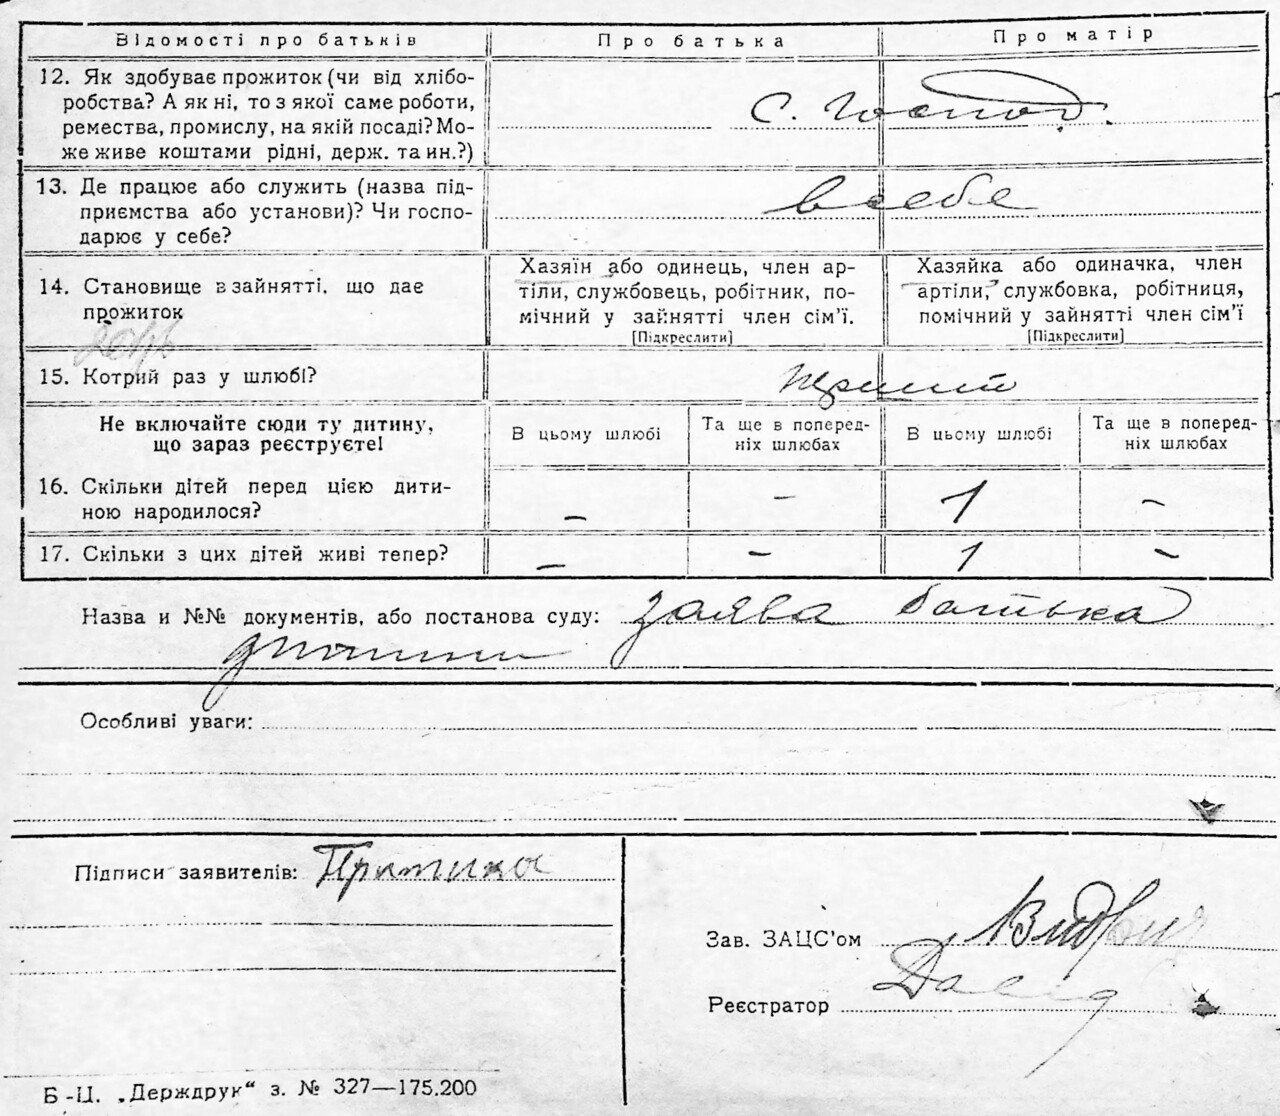 Відомості про батьків Про батька Про матір
12. Як здобуває прожиток (чи від хлібо-
робства? А як ні, то з якої саме роботи,
ремества, промислу, на якій посаді? Мо-
же живе коштами рідні, держ. та ин.?)
С. Господ.
13. Де працює або служить (назва під-
приємства або установи)? Чи госпо-
дарює у себе?
в себе
14. Становище в зайнятті, що дає
прожиток
Хазяїн або одинець, член ар-
тіли, службовець, робітник, по-
мічний у зайнятті член сім’ї.
[Підкреслити]
Хазяйка або одиначка, член
артіли, службовка, робітниця,
помічний у зайнятті член сім’ї
[Підкреслити]
15. Котрий раз у шлюбі?
перший
Не включайте сюди ту дитину,
що зараз реєструєте!
В цьому шлюбі
Та ще в поперед-
ніх шлюбах
В цьому шлюбі
Та ще в поперед-
ніх шлюбах
16. Скільки дітей перед цією дити-
ною народилося?
– – 1 –
17. Скільки з цих дітей живі тепер? – – 1 –
Назва и №№ документів, або постанова суду: заява батька
дитини
Особливі уваги:
Підписи заявителів:
Зав. ЗАЦС’ом
Реєстратор
Б-Ц. „Держдрук“ з. № 327—175.200